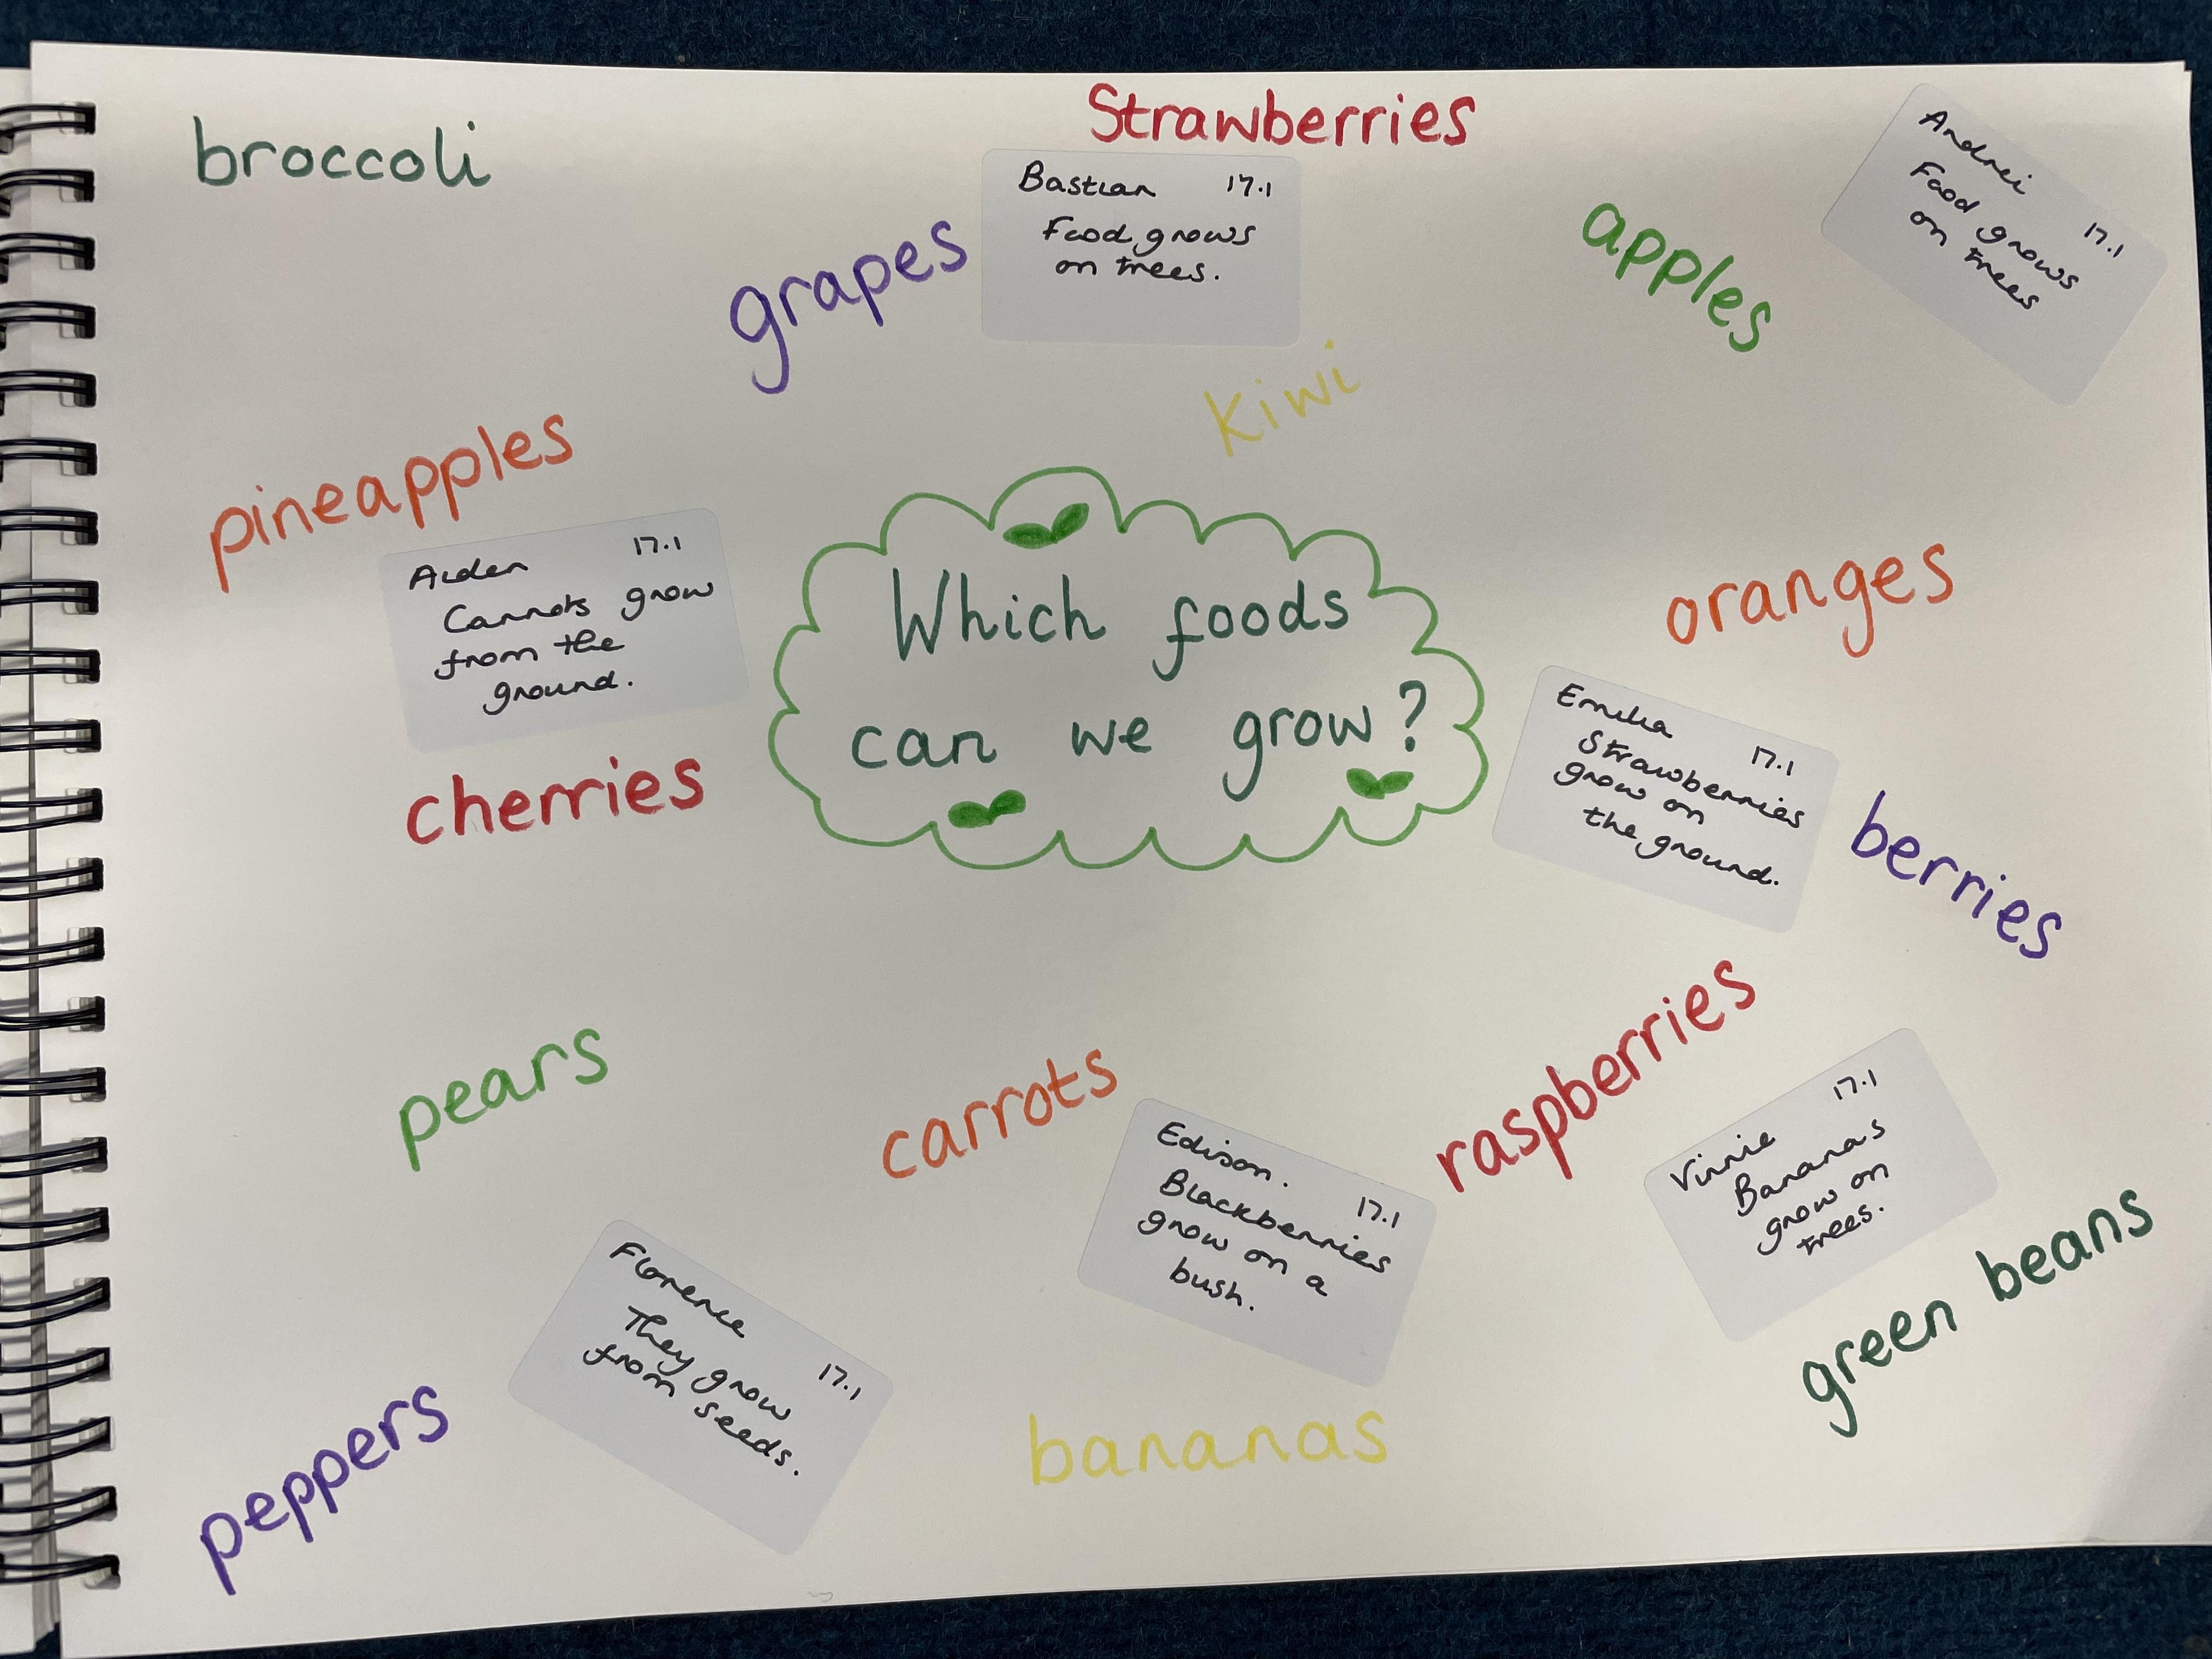 broccoli
Strawberries
Bastian 17.1
Food grows
on trees.
grapes
apples
Andrei
17.1
Food grows
on trees
kiwi
pineapples
Aiden 17.1
Carrots grow
from the
ground.
Which foods
can we grow?
oranges
Emilia
17.1
Strawberries
grow on
the ground.
cherries
berries
pears
carrots
raspberries
Edison.
17.1
Blackberries
grow on a
bush.
Vinnie
17.1
Bananas
grow on
trees.
green beans
Florence
17.1
They grow
from seeds.
peppers
bananas